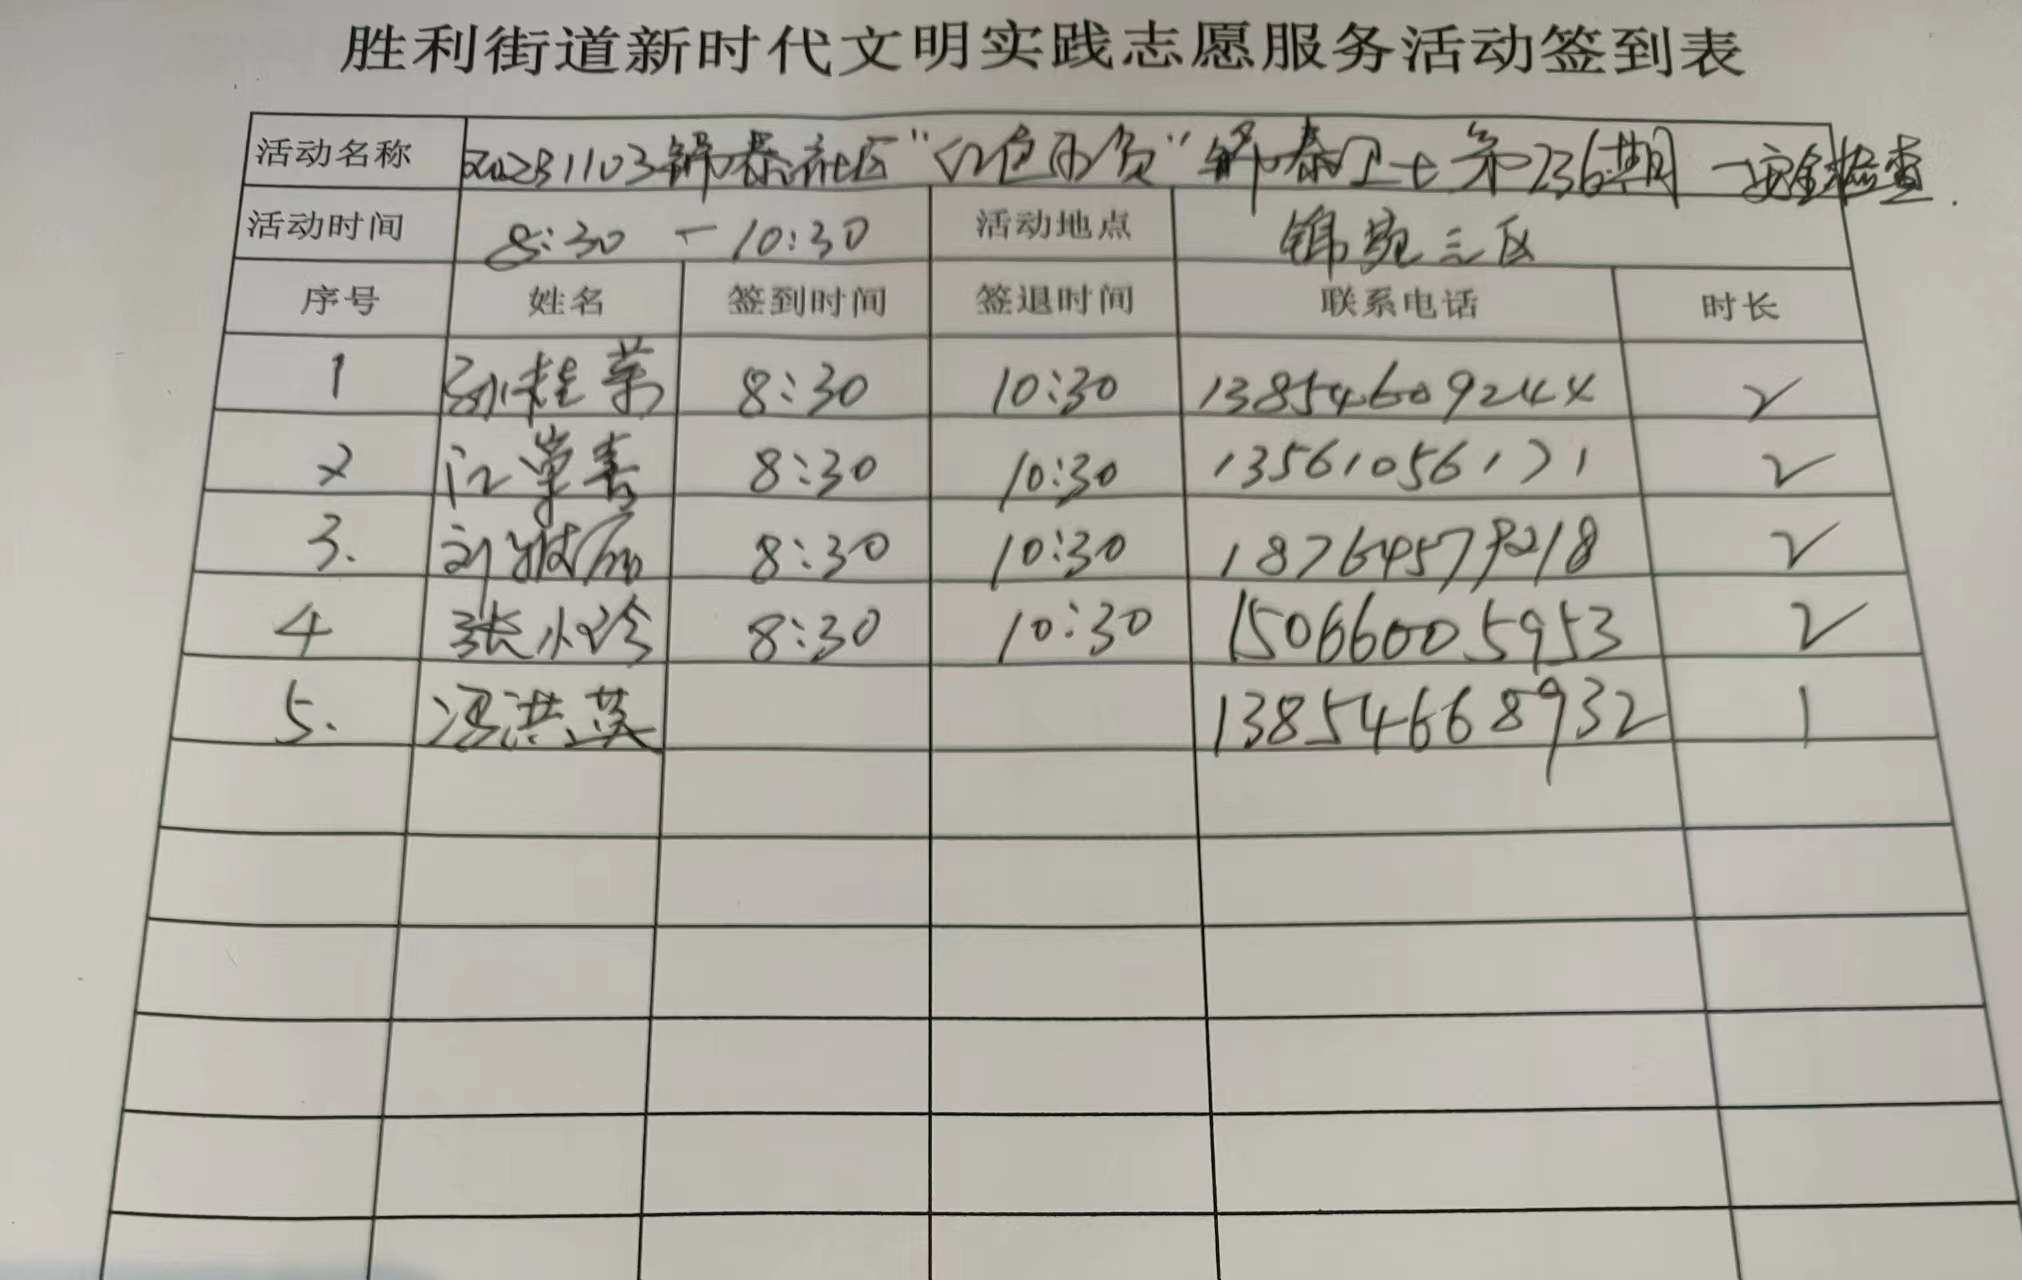 胜利街道新时代文明实践志愿服务活动签到表
活动名称 20231103锦泰社区“红色币负”锦泰卫士第236期—安全检查.
活动时间 8:30 — 10:30 活动地点 锦苑三区
序号 姓名 签到时间 签退时间 联系电话 时长
1 孙桂荣 8:30 10:30 13854609244 2
2 8:30 10:30 13561056171 2
3. 8:30 10:30 18764579218 2
4 张小玲 8:30 10:30 15066005953 2
5. 冯洪英 13854668932 1